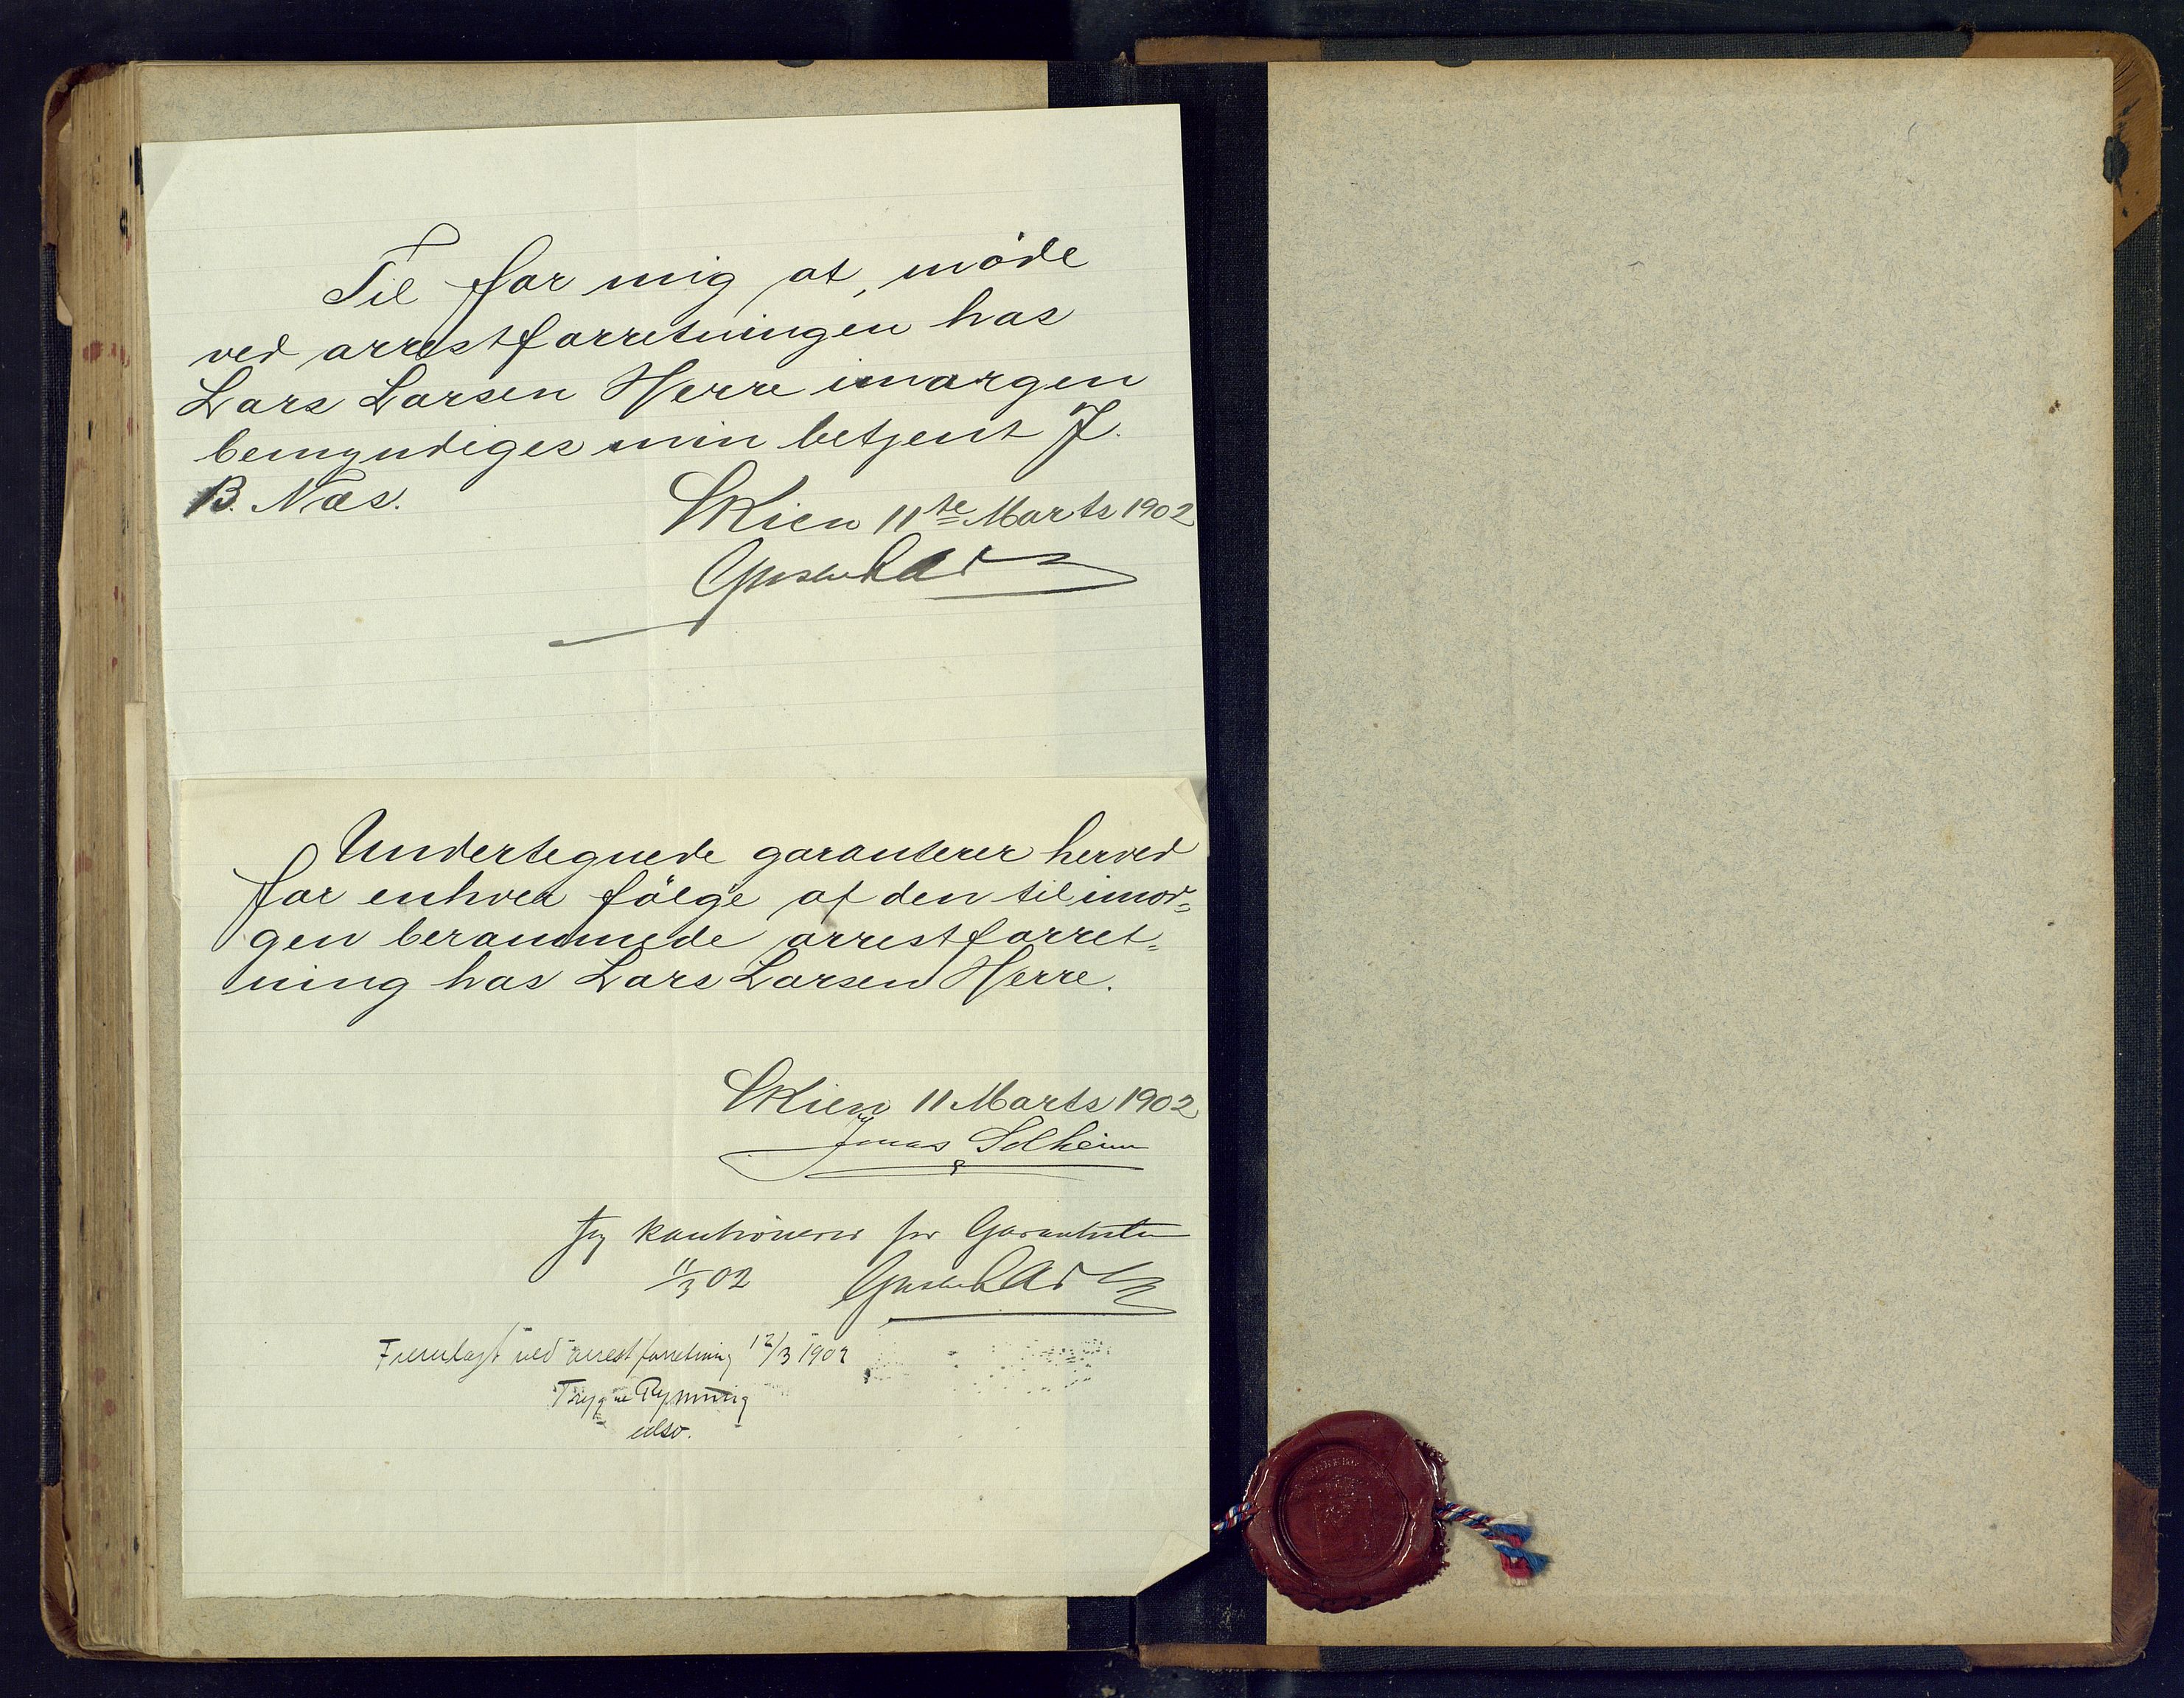 Til for mig at møde
ved arrestforretningen hos
Lars Larsen Herre imorgen
bemyndiges min betjent J.
B. Næs.
Skien 11te Marts 1902
Undertegnede garanterer herved
for enhver følge af den til imor=
gen berammede arrestforret=
ning hos Lars Larsen Herre.
Skien 11 Marts 1902
Jonas Solheim
Jeg kautionerer for Garantisten
11/3 02
Fremlagt ved arrestforretning 12/3 1902
Trygve Rynning